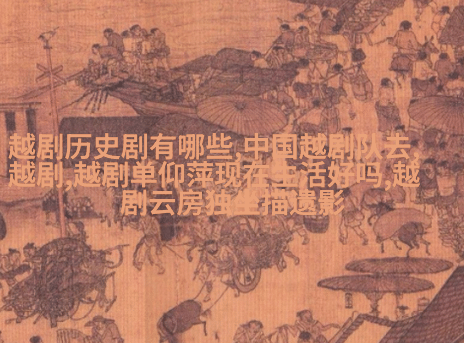 越剧历史剧有哪些,中国越剧队去,
越剧,越剧单仰萍现在生活好吗,越
剧云房独坐描遗影